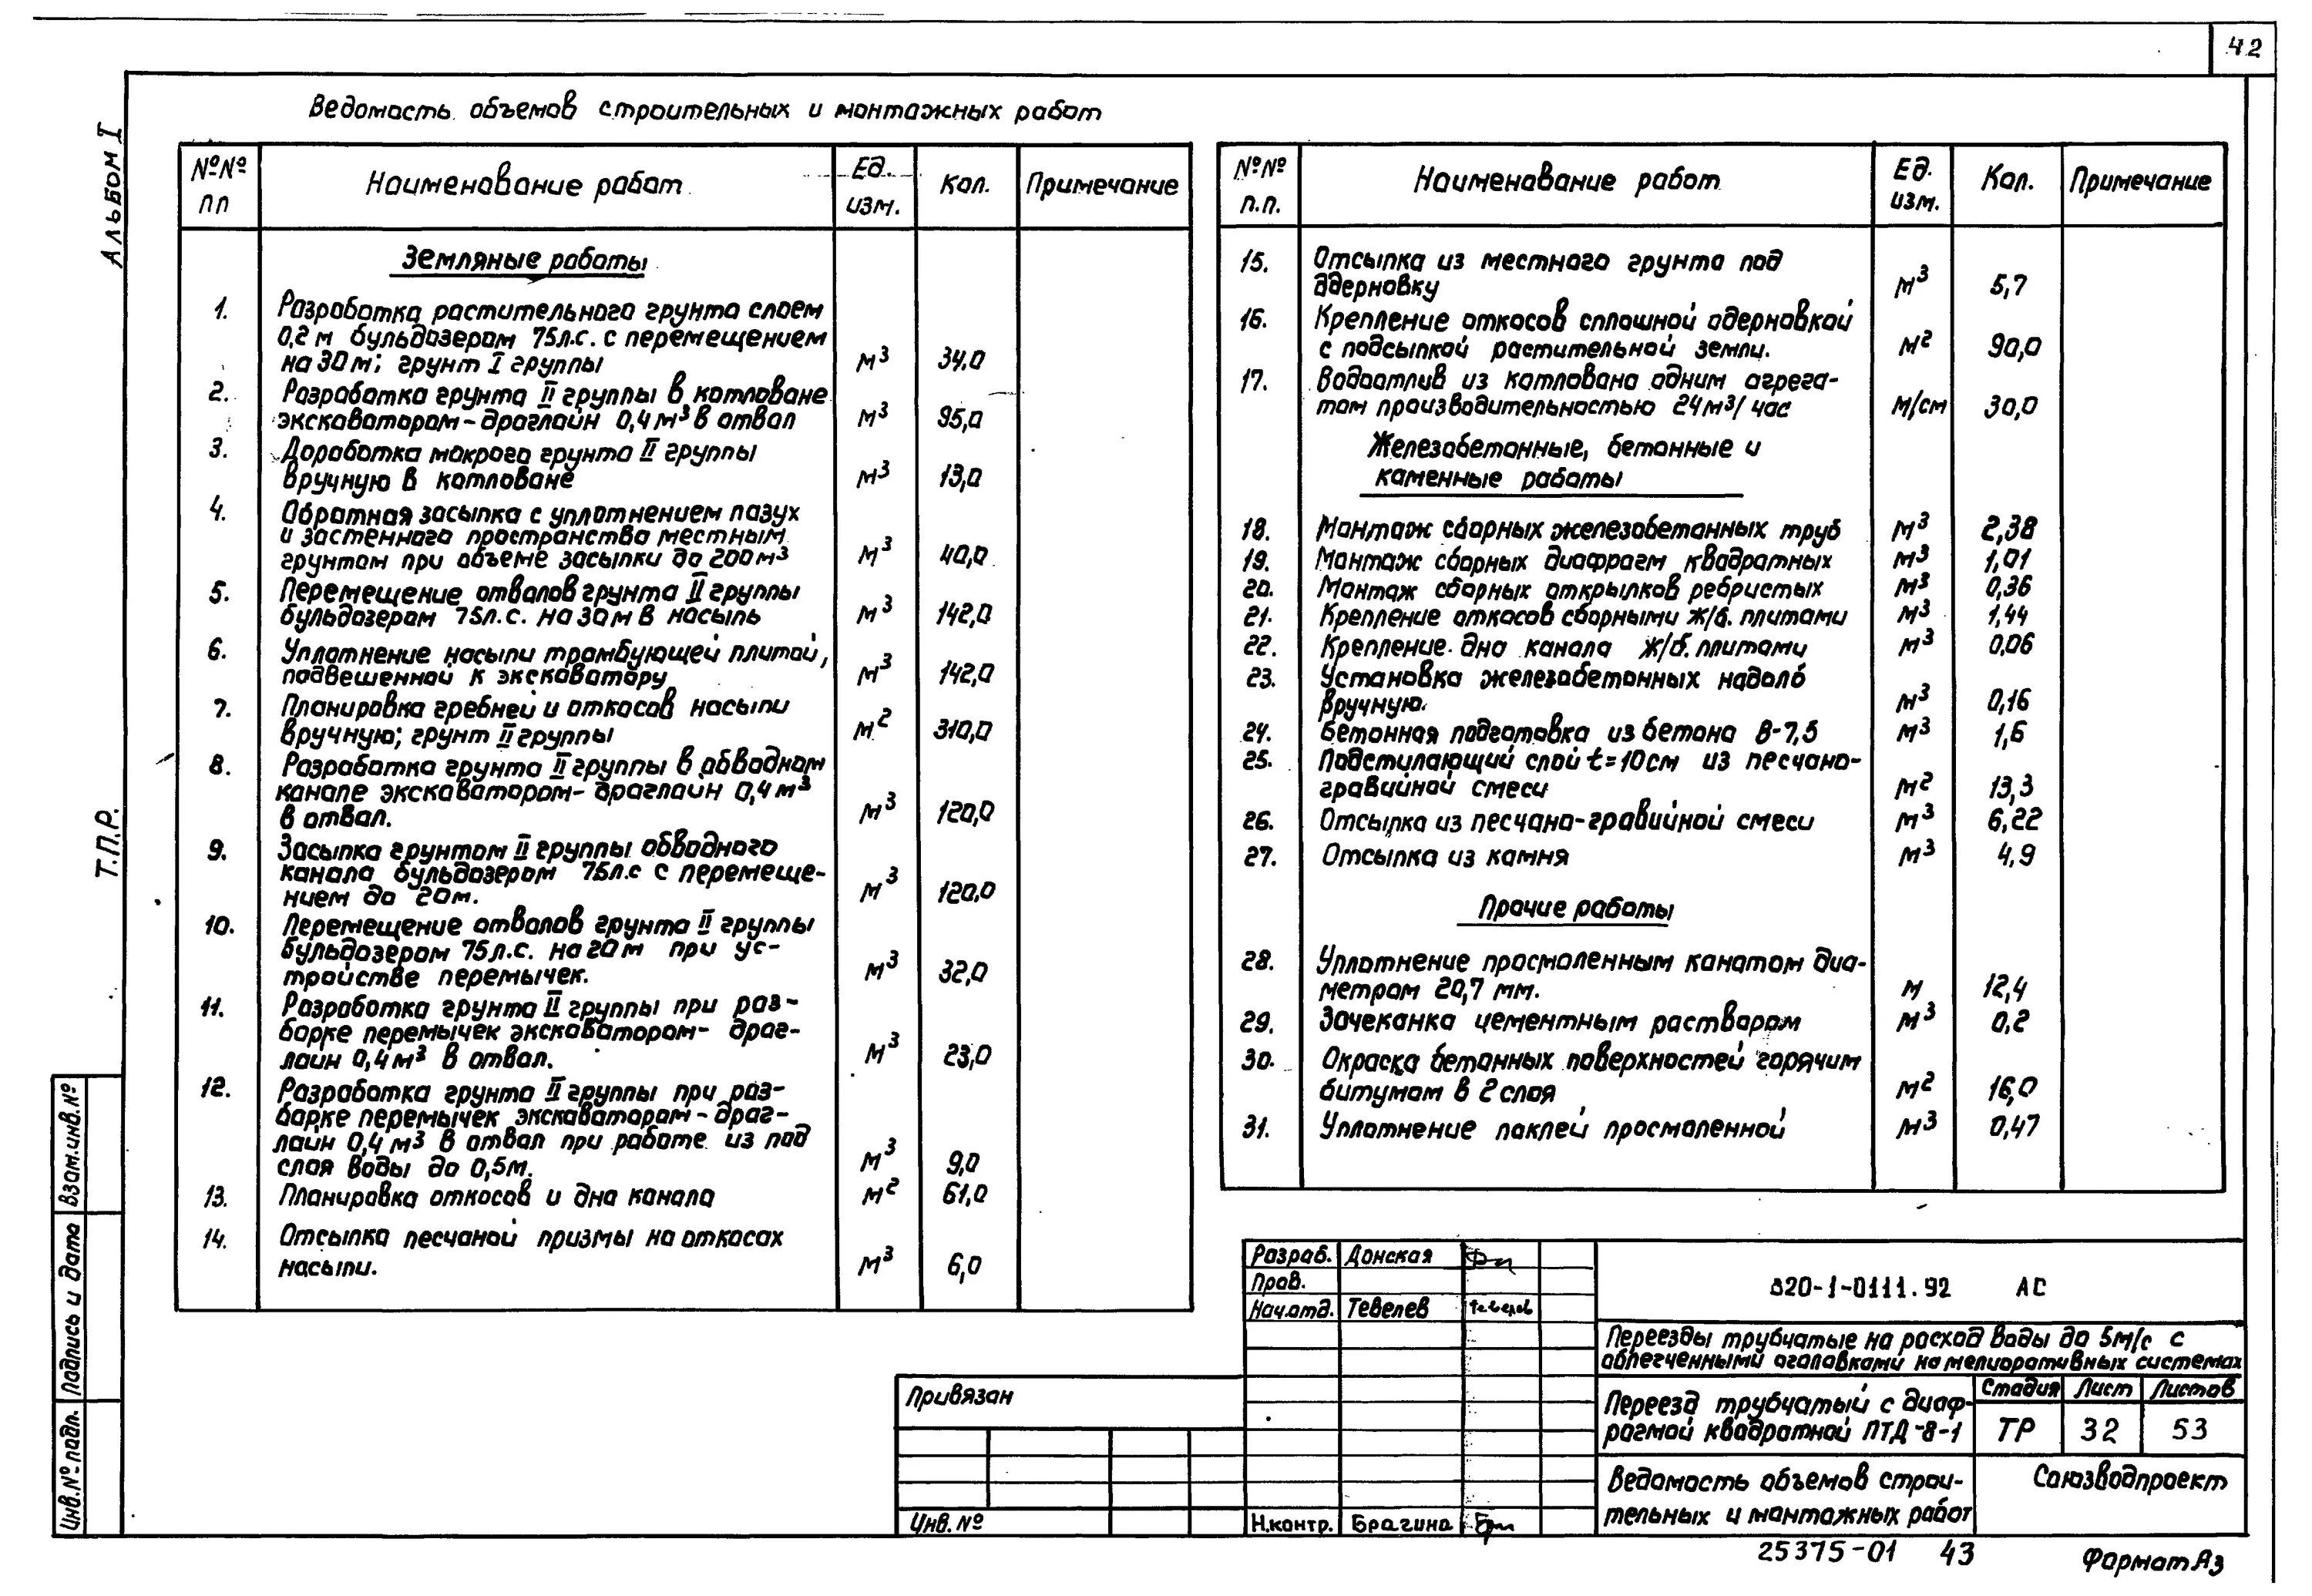 42
АЛЬБОМ I
Т.П.Р.
Ведомость объемов строительных и монтажных работ
№№ пп
Наименование работ
Ед. изм.
Кол.
Примечание
Земляные работы
1. Разработка растительного грунта слоем
0,2 м бульдозером 75л.с. с перемещением
на 30м; грунт I группы м³ 34,0
2. Разработка грунта II группы в котловане
экскаватором-драглайн 0,4м³ в отвал м³ 95,0
3. Доработка мокрого грунта II группы
вручную в котловане м³ 13,0
4. Обратная засыпка с уплотнением пазух
и застенного пространства местным
грунтом при объеме засыпки до 200м³ м³ 40,0
5. Перемещение отвалов грунта II группы
бульдозером 75л.с. на 30м в насыпь м³ 142,0
6. Уплотнение насыпи трамбующей плитой,
подвешенной к экскаватору м³ 142,0
7. Планировка гребней и откосов насыпи
вручную; грунт II группы м² 310,0
8. Разработка грунта II группы в обводном
канале экскаватором-драглайн 0,4м³
в отвал. м³ 120,0
9. Засыпка грунтом II группы обводного
канала бульдозером 75л.с с перемеще-
нием до 20м. м³ 120,0
10. Перемещение отвалов грунта II группы
бульдозером 75л.с. на 20м при ус-
тройстве перемычек. м³ 32,0
11. Разработка грунта II группы при раз-
борке перемычек экскаватором- драг-
лайн 0,4м³ в отвал. м³ 23,0
12. Разработка грунта II группы при раз-
борке перемычек экскаватором-драг-
лайн 0,4м³ в отвал при работе из под
слоя воды до 0,5м. м³ 9,0
13. Планировка откосов и дна канала м² 61,0
14. Отсыпка песчаной призмы на откосах
насыпи. м³ 6,0
№№ п.п.
Наименование работ
Ед. изм.
Кол.
Примечание
15. Отсыпка из местного грунта под
одерновку м³ 5,7
16. Крепление откосов сплошной одерновкой
с подсыпкой растительной земли. м² 90,0
17. Водоотлив из котлована одним агрега-
том производительностью 24м³/час м/см 30,0
Железобетонные, бетонные и
каменные работы
18. Монтаж сборных железобетонных труб м³ 2,38
19. Монтаж сборных диафрагм квадратных м³ 1,01
20. Монтаж сборных открылков ребристых м³ 0,36
21. Крепление откосов сборными ж/б. плитами м³ 1,44
22. Крепление дна канала ж/б. плитами м³ 0,06
23. Установка железобетонных надолб
вручную. м³ 0,16
24. Бетонная подготовка из бетона В-7,5 м³ 1,6
25. Подстилающий слой t=10см из песчано-
гравийной смеси м² 13,3
26. Отсыпка из песчано-гравийной смеси м³ 6,22
27. Отсыпка из камня м³ 4,9
Прочие работы
28. Уплотнение просмоленным канатом диа-
метром 20,7 мм. м 12,4
29. Зачеканка цементным раствором м³ 0,2
30. Окраска бетонных поверхностей горячим
битумом в 2 слоя м² 16,0
31. Уплотнение паклей просмоленной м³ 0,47
Взам.инв.№
Подпись и дата
Инв.№ подл.
Привязан
Инв.№
Разраб. Донская
Пров.
Нач.отд. Тевелев
Н.контр. Брагина
820-1-0111.92 АС
Переезды трубчатые на расход воды до 5м/с с
облегченными оголовками на мелиоративных системах
Переезд трубчатый с диаф-
рагмой квадратной ПТД-8-1
Стадия Лист Листов
ТР 32 53
Ведомость объемов строи-
тельных и монтажных работ
Союзводпроект
25375-01 43
Формат А3